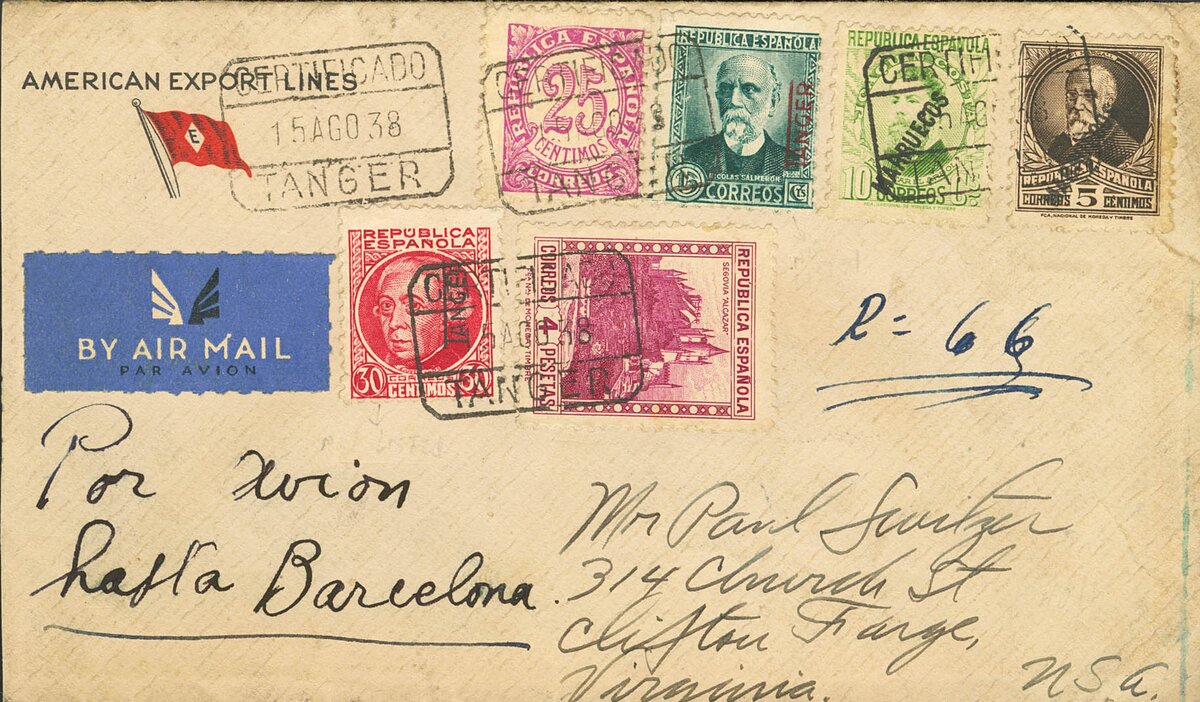 AMERICAN EXPORT LINES
E
CERTIFICADO
15 AGO 38
TANGER
REPUBLICA ESPAÑOLA
25
CENTIMOS
CORREOS
CERTIFICADO
TANGER
REPUBLICA ESPAÑOLA
TANGER
NICOLAS SALMERON
15 CORREOS CTS
REPUBLICA ESPAÑOLA
MARRUECOS
10 CORREOS
CERTIFI
REPUBLICA ESPAÑOLA
CORREOS 5 CENTIMOS
FCA. NACIONAL DE MONEDA Y TIMBRE
BY AIR MAIL
PAR AVION
REPÚBLICA
ESPAÑOLA
TANGER
30 CORREOS 30
CENTIMOS
15 AGO 38
TANGER
REPÚBLICA ESPAÑOLA
SEGOVIA "ALCAZAR"
CORREOS 4 PESETAS
R = 66
Por Avion
hasta Barcelona.
Mr Paul Switzer
314 Church St
Clifton Forge,
Virginia.
USA.